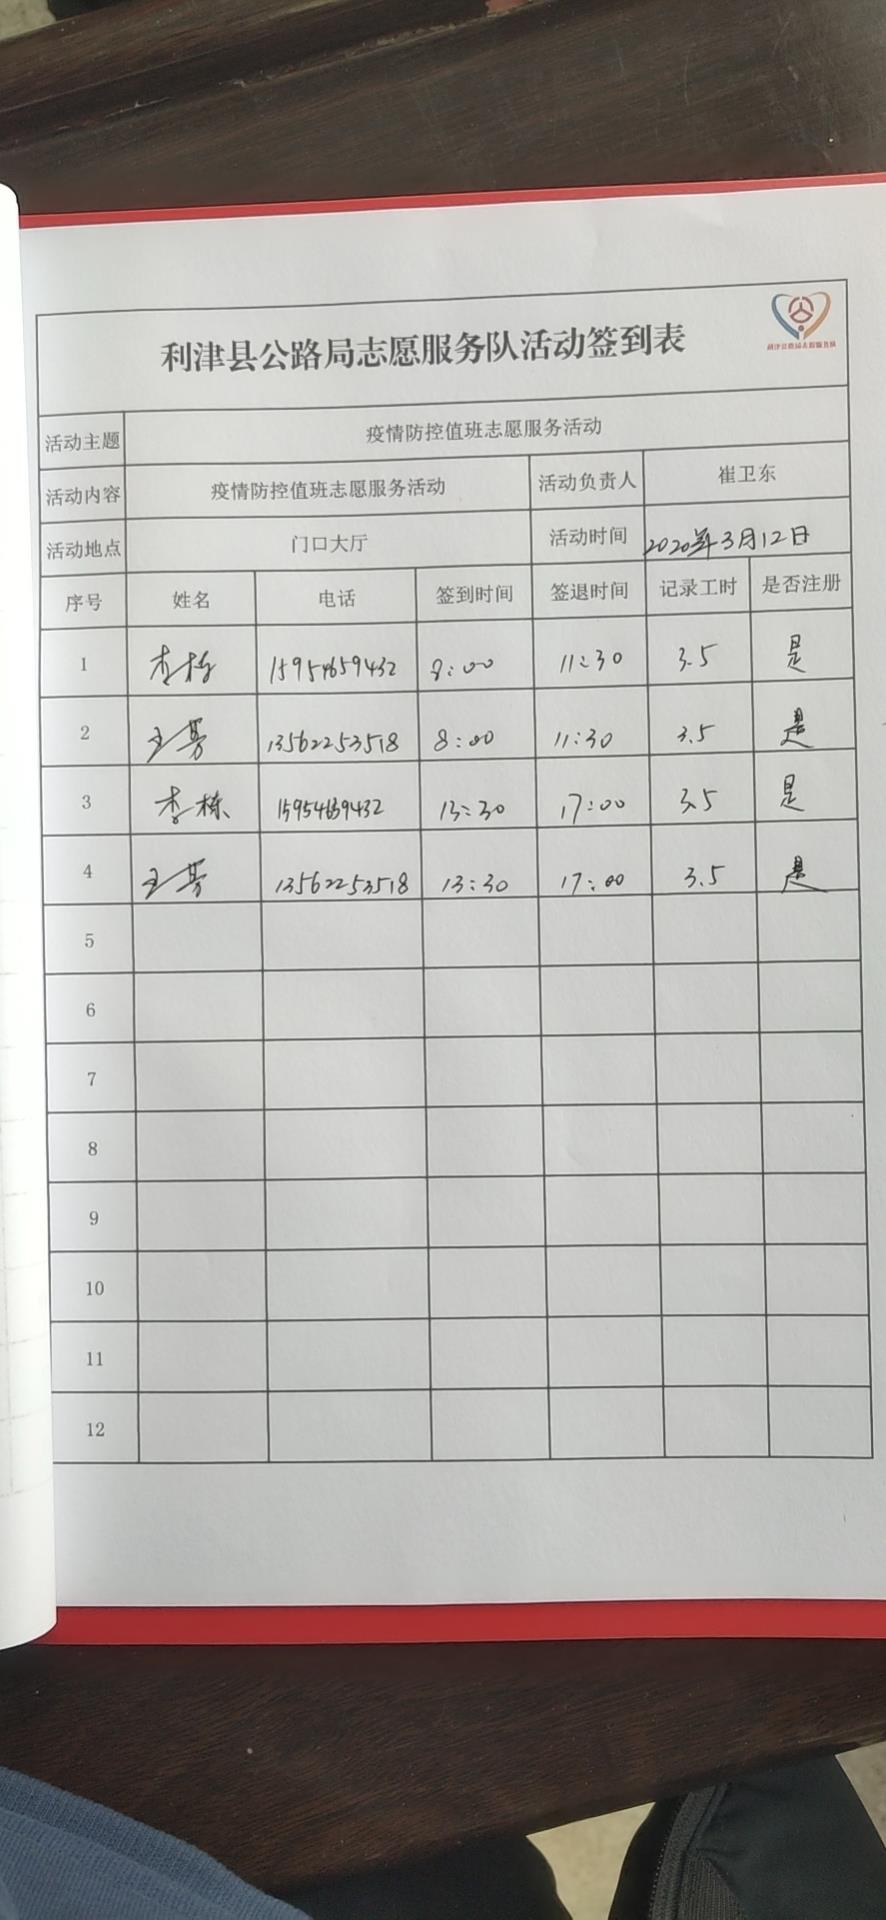 利津县公路局志愿服务队活动签到表
利津县公路局志愿服务队
活动主题 疫情防控值班志愿服务活动
活动内容 疫情防控值班志愿服务活动 活动负责人 崔卫东
活动地点 门口大厅 活动时间 2020年3月12日
序号 姓名 电话 签到时间 签退时间 记录工时 是否注册
1 李栋 15954659432 8:00 11:30 3.5 是
2 王芳 13562253518 8:00 11:30 3.5 是
3 李栋 15954659432 13:30 17:00 3.5 是
4 王芳 13562253518 13:30 17:00 3.5 是
5
6
7
8
9
10
11
12